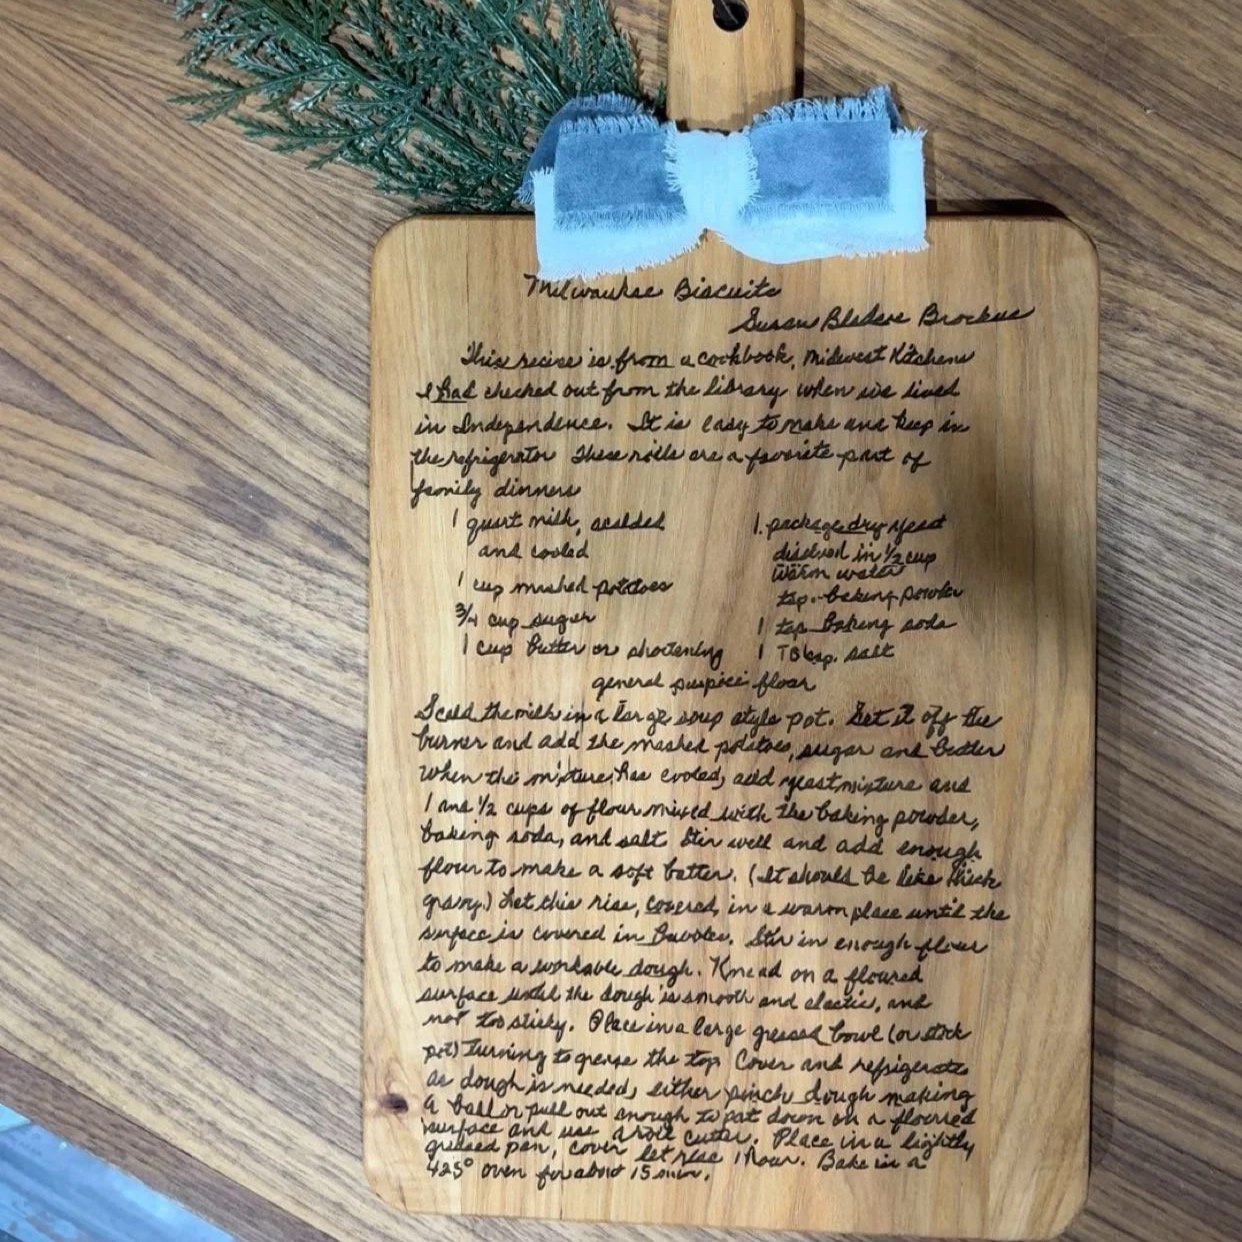 Milwaukee Biscuits
Susan Brockus
This recipe is from a cookbook, Midwest Kitchens
I had checked out from the library when we lived
in Independence. It is easy to make and keep in
the refrigerator These rolls are a favorite part of
family dinners
1 quart milk, scalded
and cooled
1 cup mashed potatoes
3/4 cup sugar
1 cup butter or shortening
1. package dry yeast
disolved in 1/2 cup
warm water
tsp. baking powder
1 tsp baking soda
1 TBsp. salt
general flour
Scald the milk in a large soup style pot. Set it off the
burner and add the mashed potatoes, sugar and butter
When the mixture has cooled, add yeast mixture and
1 and 1/2 cups of flour mixed with the baking powder,
baking soda, and salt. Stir well and add enough
flour to make a soft batter. (It should be like thick
gravy.) Let this rise, covered, in a warm place until the
surface is covered in Bubbles. Stir in enough flour
to make a workable dough. Knead on a floured
surface until the dough is smooth and elastic, and
not too sticky. Place in a large greased bowl (or stock
pot) turning to grease the top Cover and refrigerate
as dough is needed, either pinch dough making
a ball or pull out enough to pat down on a floured
surface and use a roll cutter. Place in a lightly
greased pan, cover let rise 1 hour. Bake in a
425° oven for about 15 min.